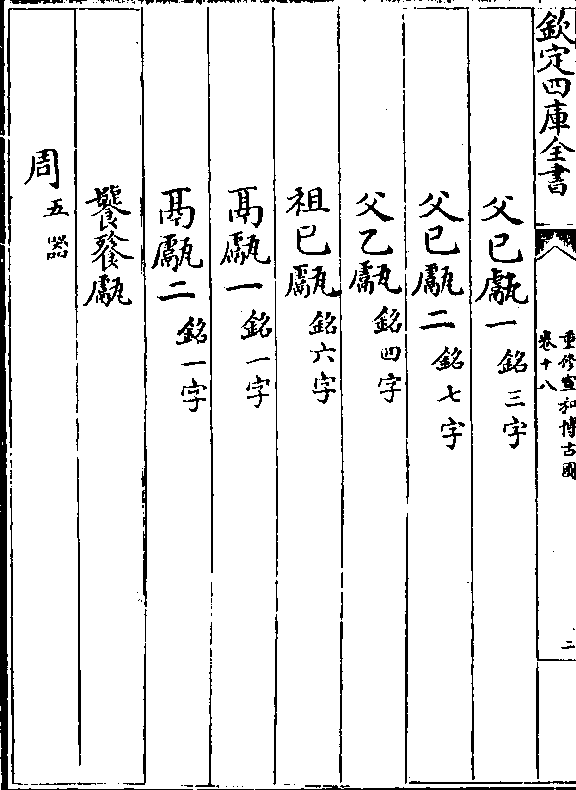 欽定四庫全書
重修宣和博古圖
卷十八
二
父已甗一銘三字
父已甗二銘七字
父乙甗銘四字
祖已甗銘六字
鬲甗一銘一字
鬲甗二銘一字
饕餮甗
周五器